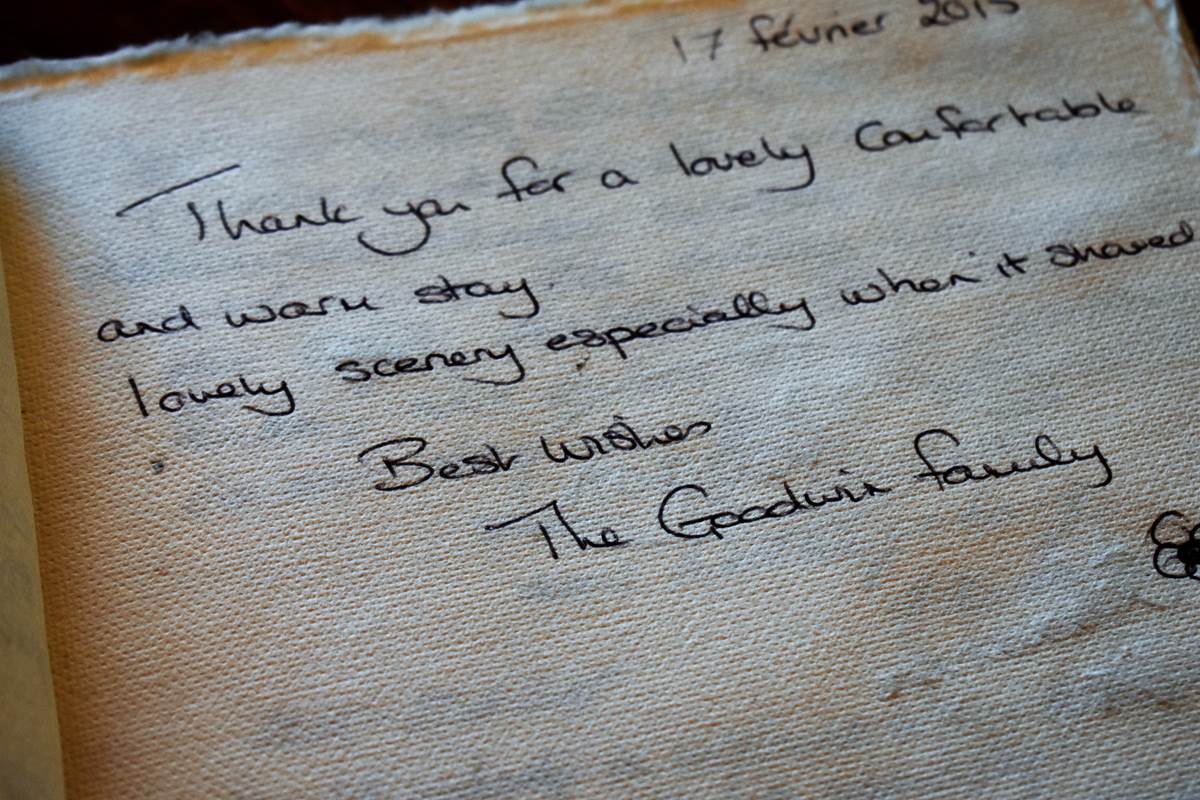 17 février 2015
Thank you for a lovely Comfortable
and warm stay.
lovely scenery especially when it snowed
Best Wishes
The Goodwin family